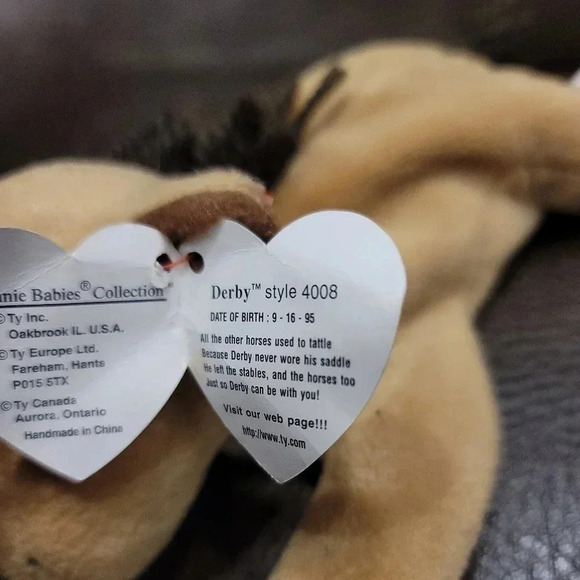 Babies® Collection
©Ty Inc.
Oakbrook IL. U.S.A.
©Ty Europe Ltd.
Fareham, Hants
P015 5TX
©Ty Canada
Aurora, Ontario
Handmade in China
Derby™ style 4008
DATE OF BIRTH : 9 - 16 - 95
All the other horses used to tattle
Because Derby never wore his saddle
He left the stables, and the horses too
Just so Derby can be with you!
Visit our web page!!!
http://www.ty.com